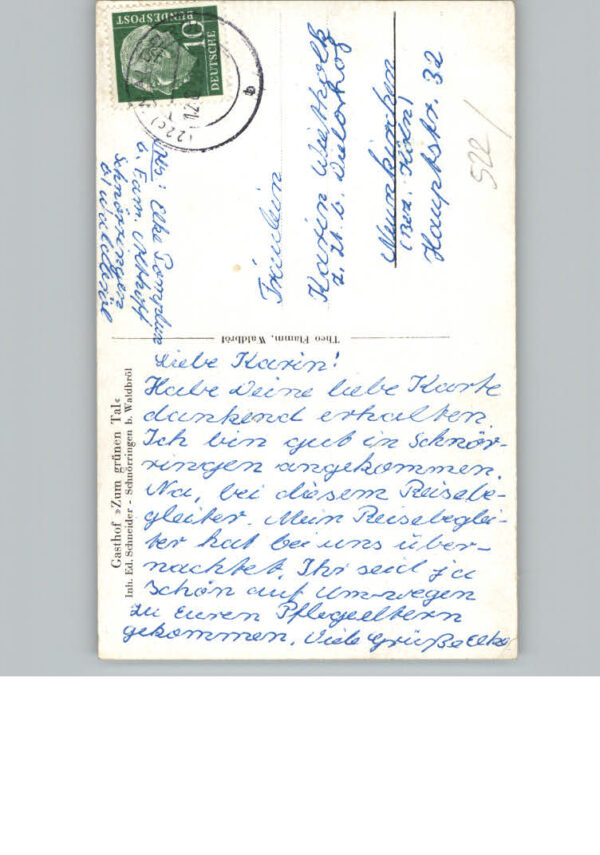 Gasthof »Zum grünen Tal«
Inh. Ed. Schneider - Schnörringen b. Waldbröl
Liebe Karin!
Habe Deine liebe Karte
dankend erhalten.
Ich bin gut in Schnör-
ringen angekommen.
Na, bei diesem Reisebe-
gleiter. Mein Reisebeglei-
ter hat bei uns über-
nachtet. Ihr seid ja
schön auf Um-wegen
zu euren Pflegeeltern
gekommen. Viele Grüße Elke
Theo Flamm, Waldbröl
Abs: Elke
b. Fam.
Schnörringen
b/ Waldbröl
DEUTSCHE
BUNDESPOST
10
(22c)
b
Fräulein
Karin
z. Zt. b.
Neunkirchen
(Bez: Köln)
Hauptstr. 32
522/